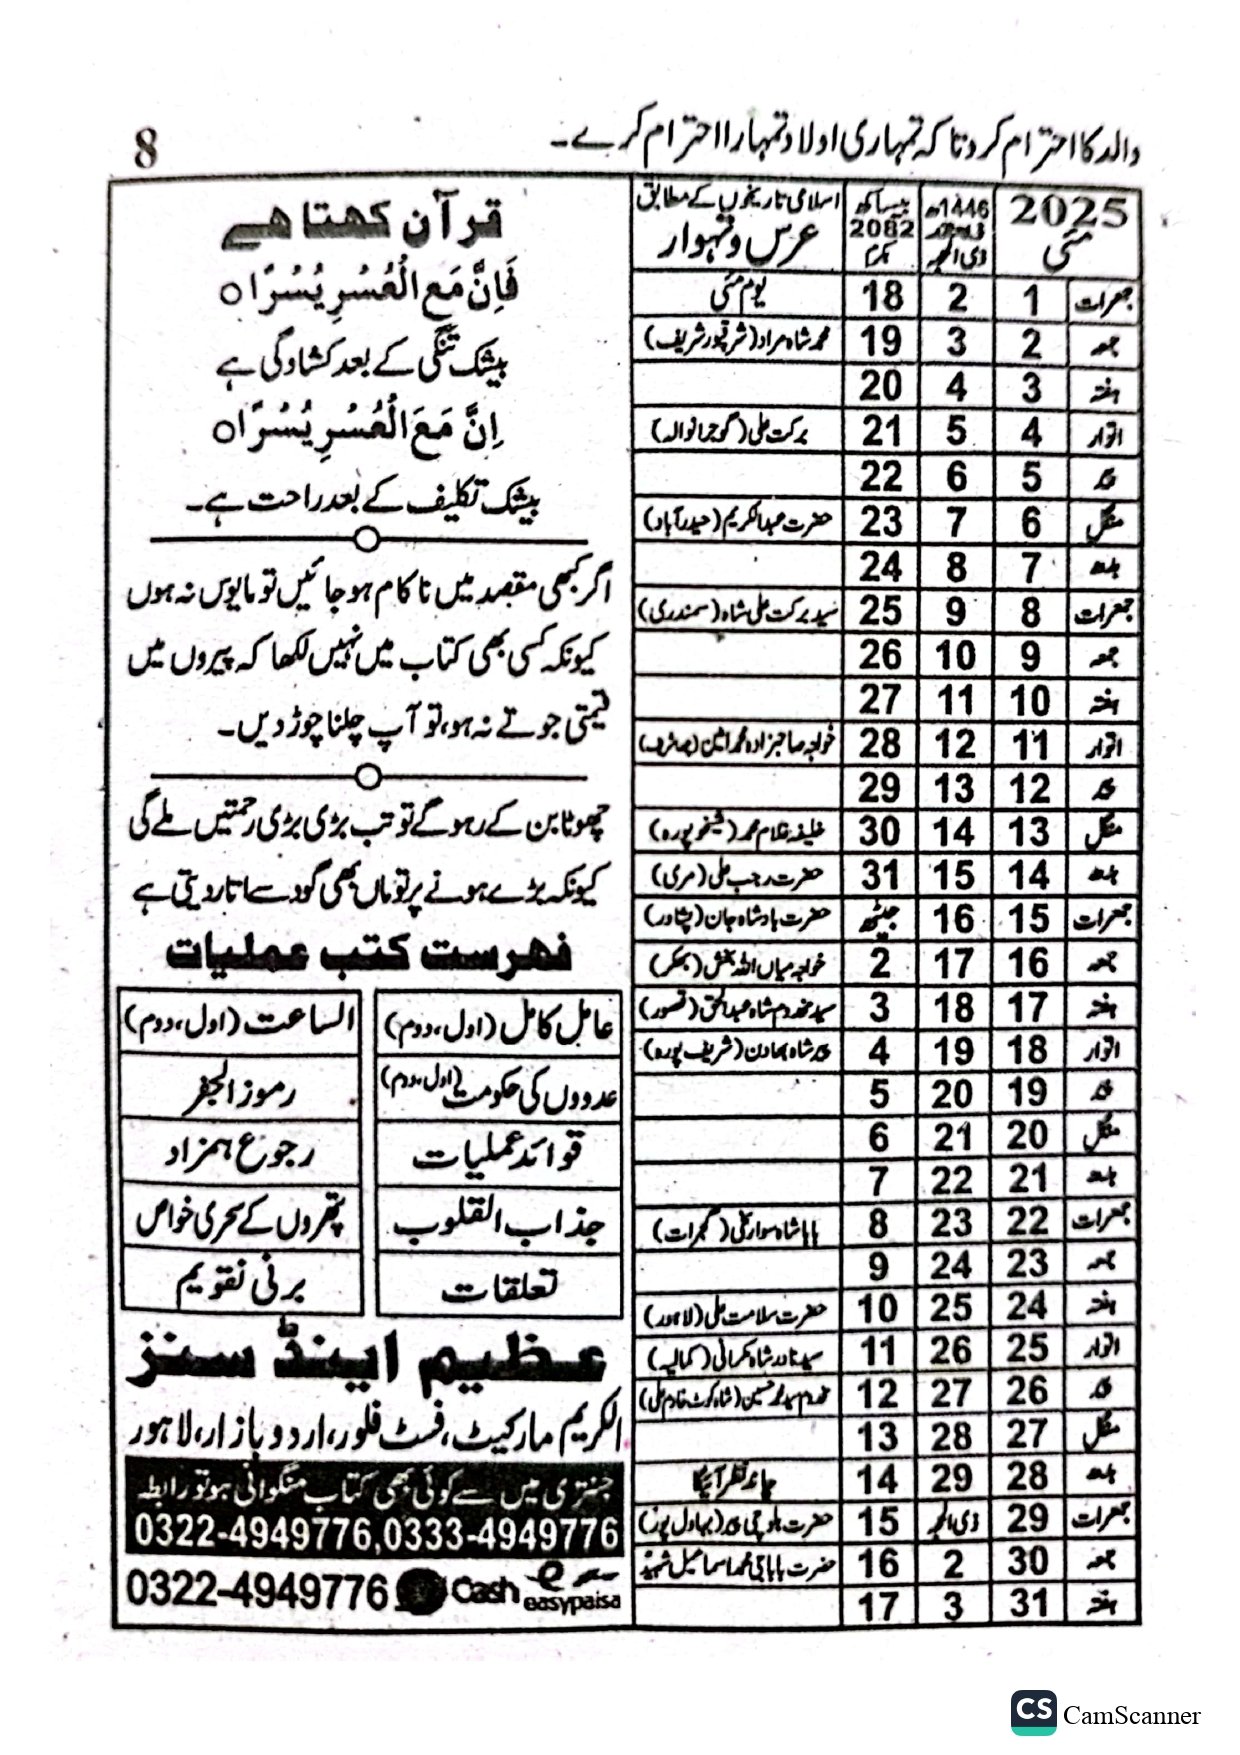 8
والد کا احترام کرو تاکہ تمہاری اولاد تمہارا احترام کرے۔
2025 مئی | 1446ھ ذی الحجہ | بیساکھ 2082 بکرم | اسلامی تاریخوں کے مطابق عرس و تہوار
جمعرات 1 2 18 یوم مئی
جمعہ 2 3 19 محمد شاہ مراد (شرقپور شریف)
ہفتہ 3 4 20
اتوار 4 5 21 برکت علی (گوجرانوالہ)
پیر 5 6 22
منگل 6 7 23 حضرت عبدالکریم (حیدرآباد)
بدھ 7 8 24
جمعرات 8 9 25 سید برکت علی شاہ (سمندری)
جمعہ 9 10 26
ہفتہ 10 11 27
اتوار 11 12 28 خواجہ صاحبزادہ محمد امین
پیر 12 13 29
منگل 13 14 30 خلیفہ غلام محمد (شیخوپورہ)
بدھ 14 15 31 حضرت رجب علی (مری)
جمعرات 15 16 جیٹھ حضرت بادشاہ جان (پشاور)
جمعہ 16 17 2 خواجہ میاں اللہ بخش (بھکر)
ہفتہ 17 18 3 سید مخدوم شاہ عبدالحق (قصور)
اتوار 18 19 4 پیر شاہ بھاون (شریف پورہ)
پیر 19 20 5
منگل 20 21 6
بدھ 21 22 7
جمعرات 22 23 8 بابا شاہ سوار علی (گجرات)
جمعہ 23 24 9
ہفتہ 24 25 10 حضرت سلامت علی (لاہور)
اتوار 25 26 11 سید نادر شاہ کرمانی (کمالیہ)
پیر 26 27 12 مخدوم سید محمد حسین (شاہ کوٹ خادم علی)
منگل 27 28 13
بدھ 28 29 14 چاند نظر آئیگا
جمعرات 29 ذی الحجہ 15 حضرت بلوچی پیر (بہاولپور)
جمعہ 30 2 16 حضرت باباجی محمد اسماعیل شہید
ہفتہ 31 3 17
قرآن کہتا ہے
فَاِنَّ مَعَ الْعُسْرِ يُسْرًا ○
بیشک تنگی کے بعد کشادگی ہے
اِنَّ مَعَ الْعُسْرِ يُسْرًا ○
بیشک تکلیف کے بعد راحت ہے۔
اگر کبھی مقصد میں ناکام ہو جائیں تو مایوس نہ ہوں
کیونکہ کسی بھی کتاب میں نہیں لکھا کہ پیروں میں
قیمتی جوتے نہ ہو، تو آپ چلنا چھوڑ دیں۔
چھوٹا بن کے رہو گے تو تب بڑی بڑی رحمتیں ملے گی
کیونکہ بڑے ہونے پر تو ماں بھی گود سے اتار دیتی ہے
فہرست کتب عملیات
عامل کامل (اول، دوم) | الساعت (اول، دوم)
عددوں کی حکومت (اول، دوم) | رموز الجفر
قوائد عملیات | رجوع ہمزاد
جذاب القلوب | پتھروں کے سحری خواص
تعلقات | برنی تقویم
عظیم اینڈ سنز
الکریم مارکیٹ، فسٹ فلور، اردو بازار، لاہور
جنتری میں سے کوئی بھی کتاب منگوانی ہو تو رابطہ
0322-4949776,0333-4949776
0322-4949776 Cash easypaisa
CS CamScanner